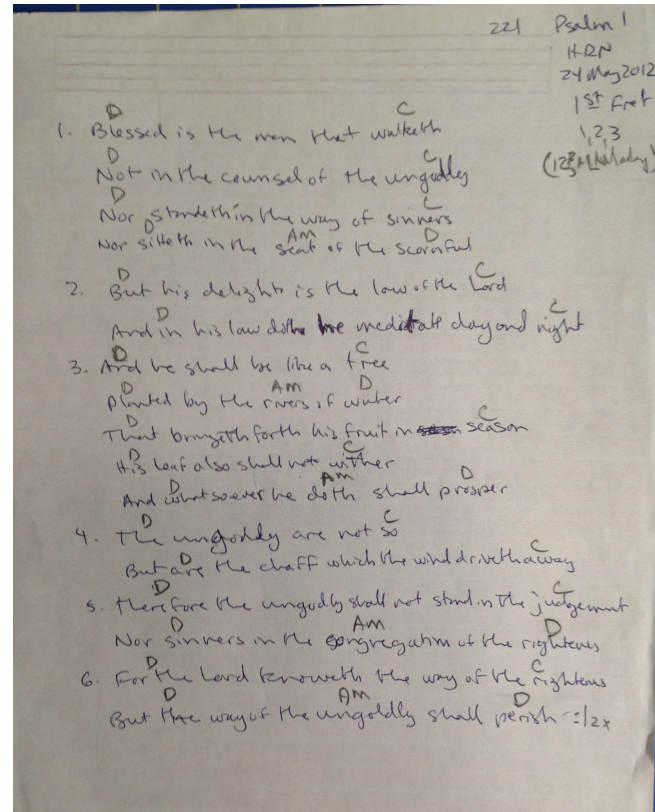 221 Psalm 1
HRN
24 May 2012
1st Fret
1, 2, 3
D C
1. Blessed is the man that walketh
D C
Not in the counsel of the ungodly
D C
Nor standeth in the way of sinners
D Am D
Nor sitteth in the seat of the scornful
D C
2. But his delight is the law of the Lord
D C
And in his law doth he meditate day and night
D C
3. And he shall be like a tree
D Am D
Planted by the rivers of water
D C
That bringeth forth his fruit in season
D C
His leaf also shall not wither
D Am D
And whatsoever he doth shall prosper
D C
4. The ungodly are not so
D C
But are the chaff which the wind driveth away
D C
5. Therefore the ungodly shall not stand in the judgement
D Am D
Nor sinners in the congregation of the righteous
D C
6. For the Lord knoweth the way of the righteous
D Am D
But the way of the ungoldly shall perish :/2x